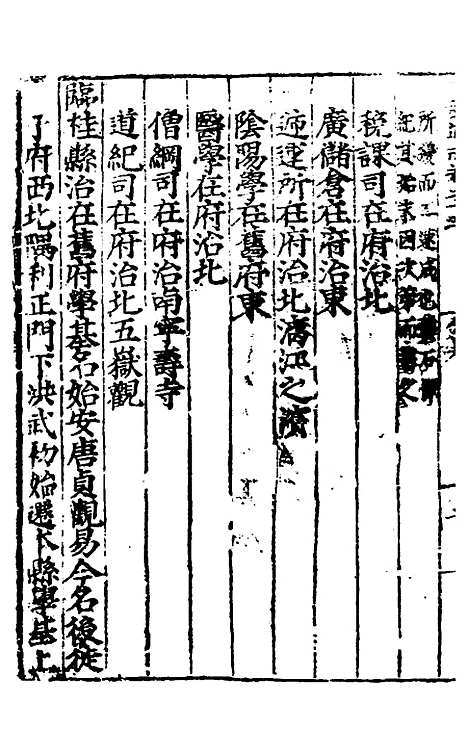 所
紀其始末因次第而書之
稅課司在府治北
廣儲倉在府治東
遞運所在府治北漓江之濱
陰陽學在舊府東
醫學在府治北
僧綱司在府治南寧壽寺
道紀司在府治北五嶽觀
臨桂縣治在舊府學基名始安唐貞觀易今名後徙
于府西北隅利正門下洪武初始遷本縣學基上